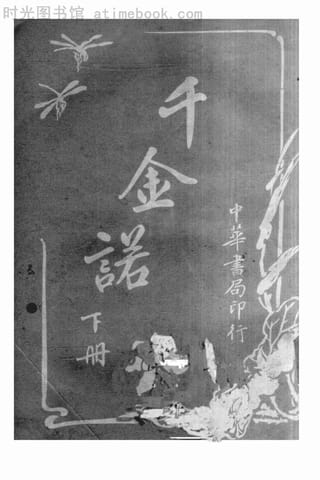 时光图书馆 - atimebook.com
千金諾
下册
中華書局印行